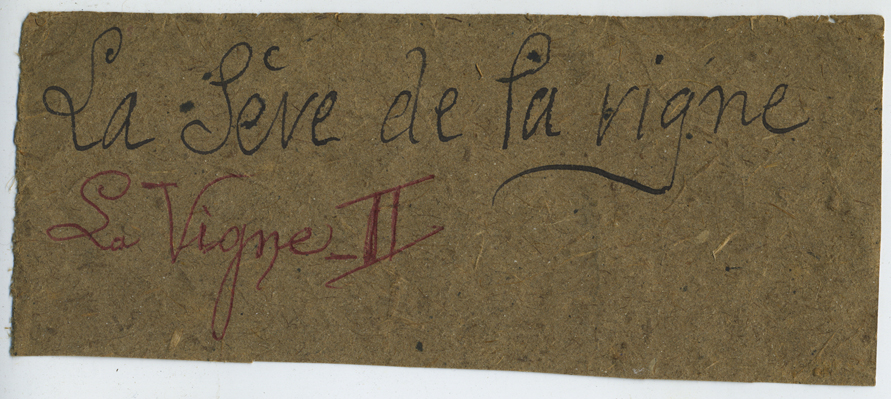 La Sève de la vigne
La Vigne_II